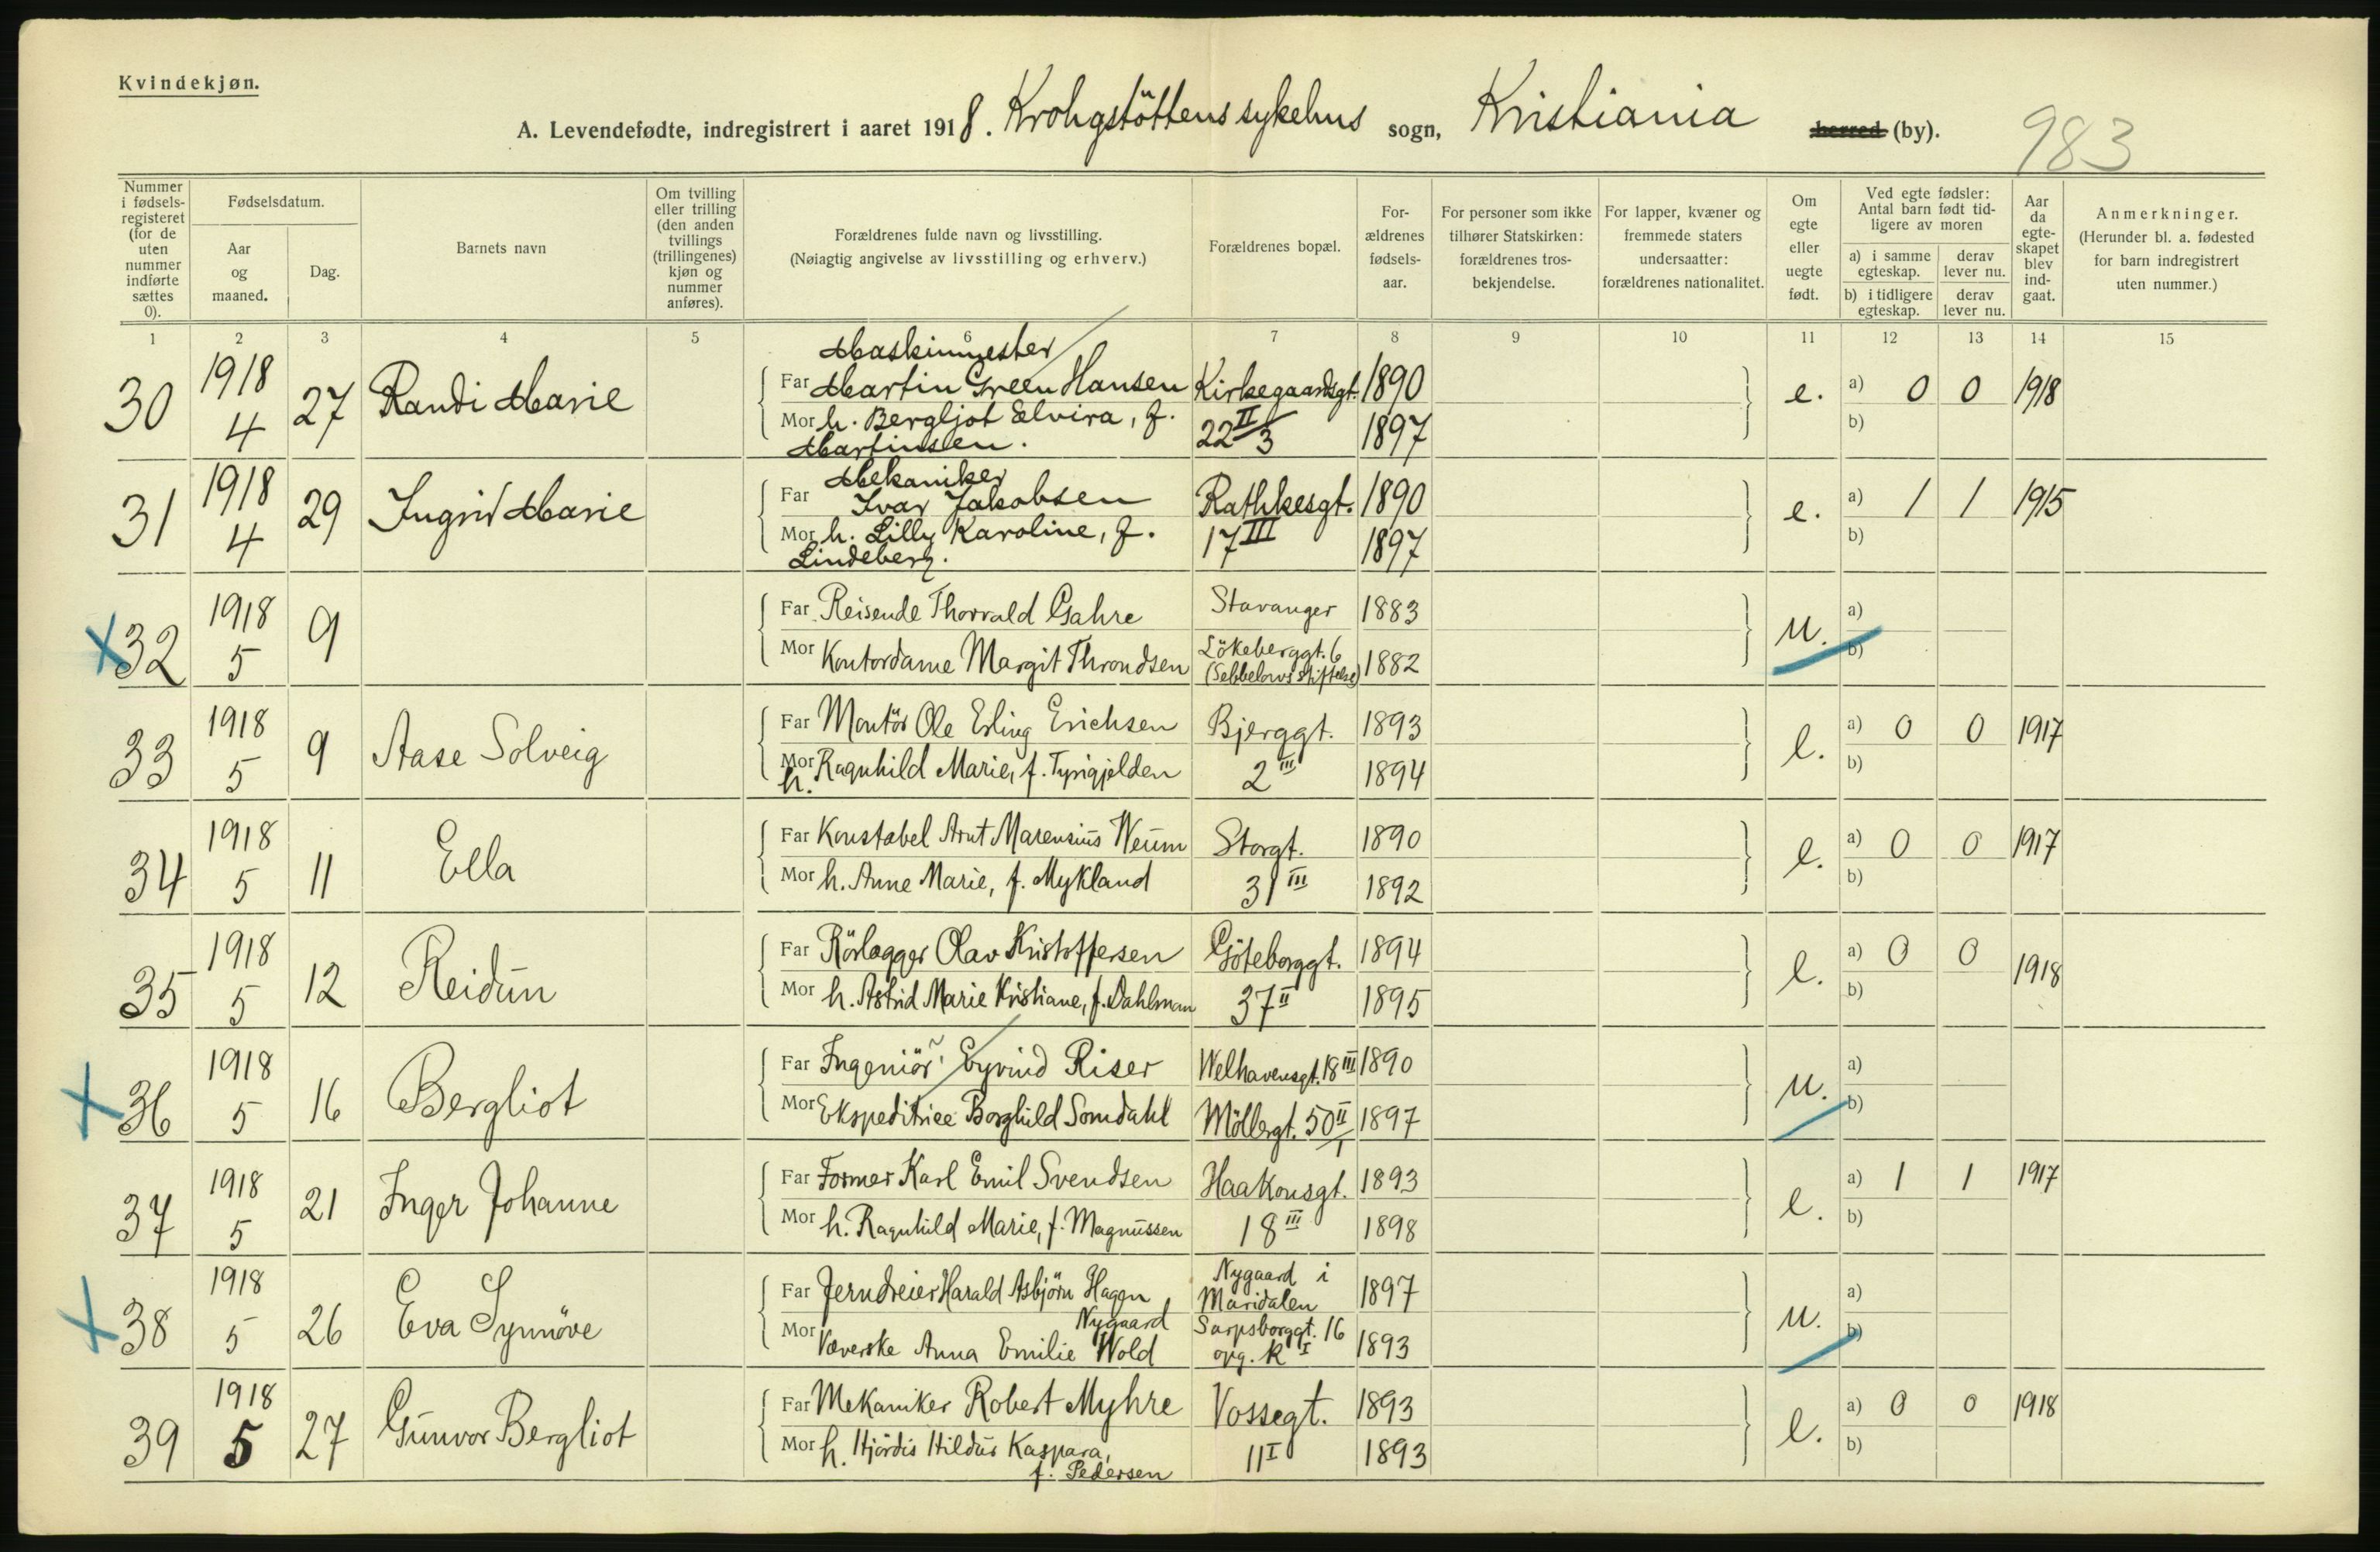 Kvindekjøn.
A. Levendefødte, indregistrert i aaret 1918. Krohgstöttens sykehus sogn, Kristiania herred (by). 983
Nummer i fødselsregisteret (for de uten nummer indførte sættes 0).
Fødselsdatum.
Aar og maaned.
Dag.
Barnets navn
Om tvilling eller trilling (den anden tvillings (trillingenes) kjøn og nummer anføres).
Forældrenes fulde navn og livsstilling.
(Nøiagtig angivelse av livsstilling og erhverv.)
Forældrenes bopæl.
Forældrenes fødselsaar.
For personer som ikke tilhører Statskirken: forældrenes trosbekjendelse.
For lapper, kvæner og fremmede staters undersaatter: forældrenes nationalitet.
Om egte eller uegte født.
Ved egte fødsler: Antal barn født tidligere av moren
a) i samme egteskap.
derav lever nu.
b) i tidligere egteskap.
derav lever nu.
Aar da egteskapet blev indgaat.
Anmerkninger.
(Herunder bl. a. fødested for barn indregistrert uten nummer.)
1 2 3 4 5 6 7 8 9 10 11 12 13 14 15
Maskinmester
30 1918 4 27 Randi Marie Far Martin Green Hansen Kirkegaardsgt. 1890 e. a) 0 0 1918
Mor h. Bergljot Elvira, f. 22 II/3 1897 b)
Martinsen.
Mekaniker
31 1918 4 29 Ingrid Marie Far Ivar Jakobsen Rathkesgt. 1890 e. a) 1 1 1915
Mor h. Lilly Karoline, f. 17 III 1897 b)
Lindeberg.
X 32 1918 5 9 Far Reisende Thorvald Gahre Stavanger 1883 u. a)
Mor Kontordame Margit Throndsen Lökeberggt. 6 (Sebbelows stiftelse) 1882 b)
33 1918 5 9 Aase Solveig Far Montör Ole Erling Erichsen Bjerggt. 1893 e. a) 0 0 1917
Mor h. Ragnhild Marie, f. Tyrigjelden 2 III 1894 b)
34 1918 5 11 Ella Far Konstabel Arnt Marensius Weum Storgt. 1890 e. a) 0 0 1917
Mor h. Anne Marie, f. Mykland 31 III 1892 b)
35 1918 5 12 Reidun Far Rörlægger Olav Kristoffersen Göteborggt. 1894 e. a) 0 0 1918
Mor h. Astrid Marie Kristiane, f. Dahlman 37 II 1895 b)
X 36 1918 5 16 Bergliot Far Ingeniör Eyvind Riser Welhavensgt. 18 III 1890 u. a)
Mor Ekspeditrice Borghild Somdahl Möllergt. 50 II/1 1897 b)
37 1918 5 21 Inger Johanne Far Former Karl Emil Svendsen Haakonsgt. 1893 e. a) 1 1 1917
Mor h. Ragnhild Marie, f. Magnussen 18 III 1898 b)
X 38 1918 5 26 Eva Synnöve Far Jerndreier Harald Asbjörn Hagen Nygaard i Maridalen 1897 u. a)
Nygaard
Mor Væverske Anna Emilie Wold Sarpsborggt. 16 opg. K I 1893 b)
39 1918 5 27 Gunvor Bergliot Far Mekaniker Robert Myhre Vossegt. 1893 e. a) 0 0 1918
Mor h. Hjördis Hildur Kaspara, 11 I 1893 b)
f. Pedersen